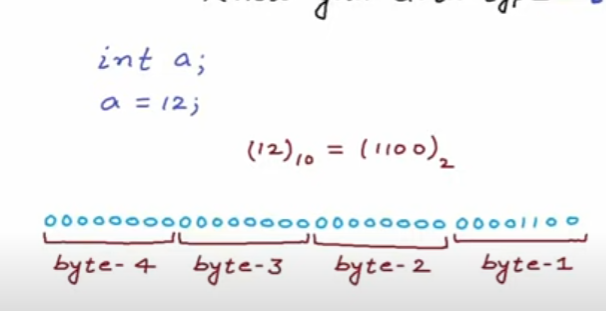 int a;
a = 12;
(12)10 = (1100)2
00000000 00000000 00000000 00001100
byte-4 byte-3 byte-2 byte-1